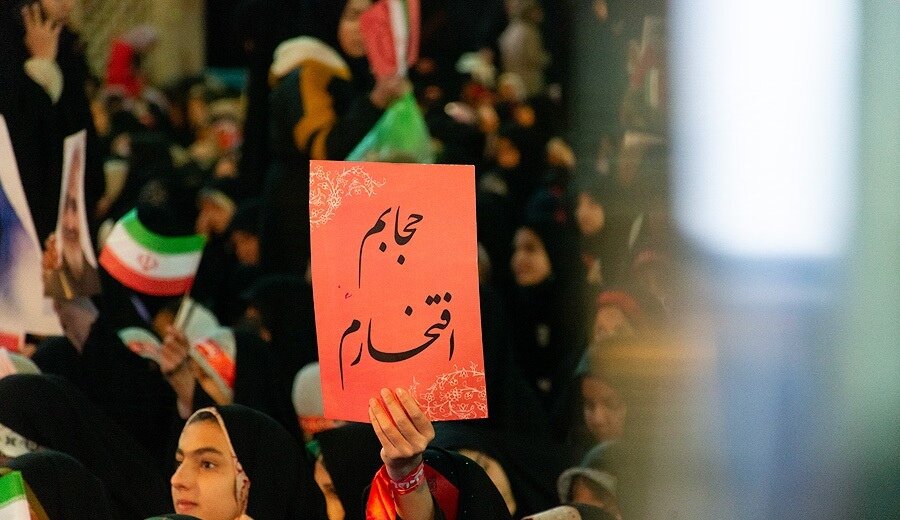 حجابم
افتخارم